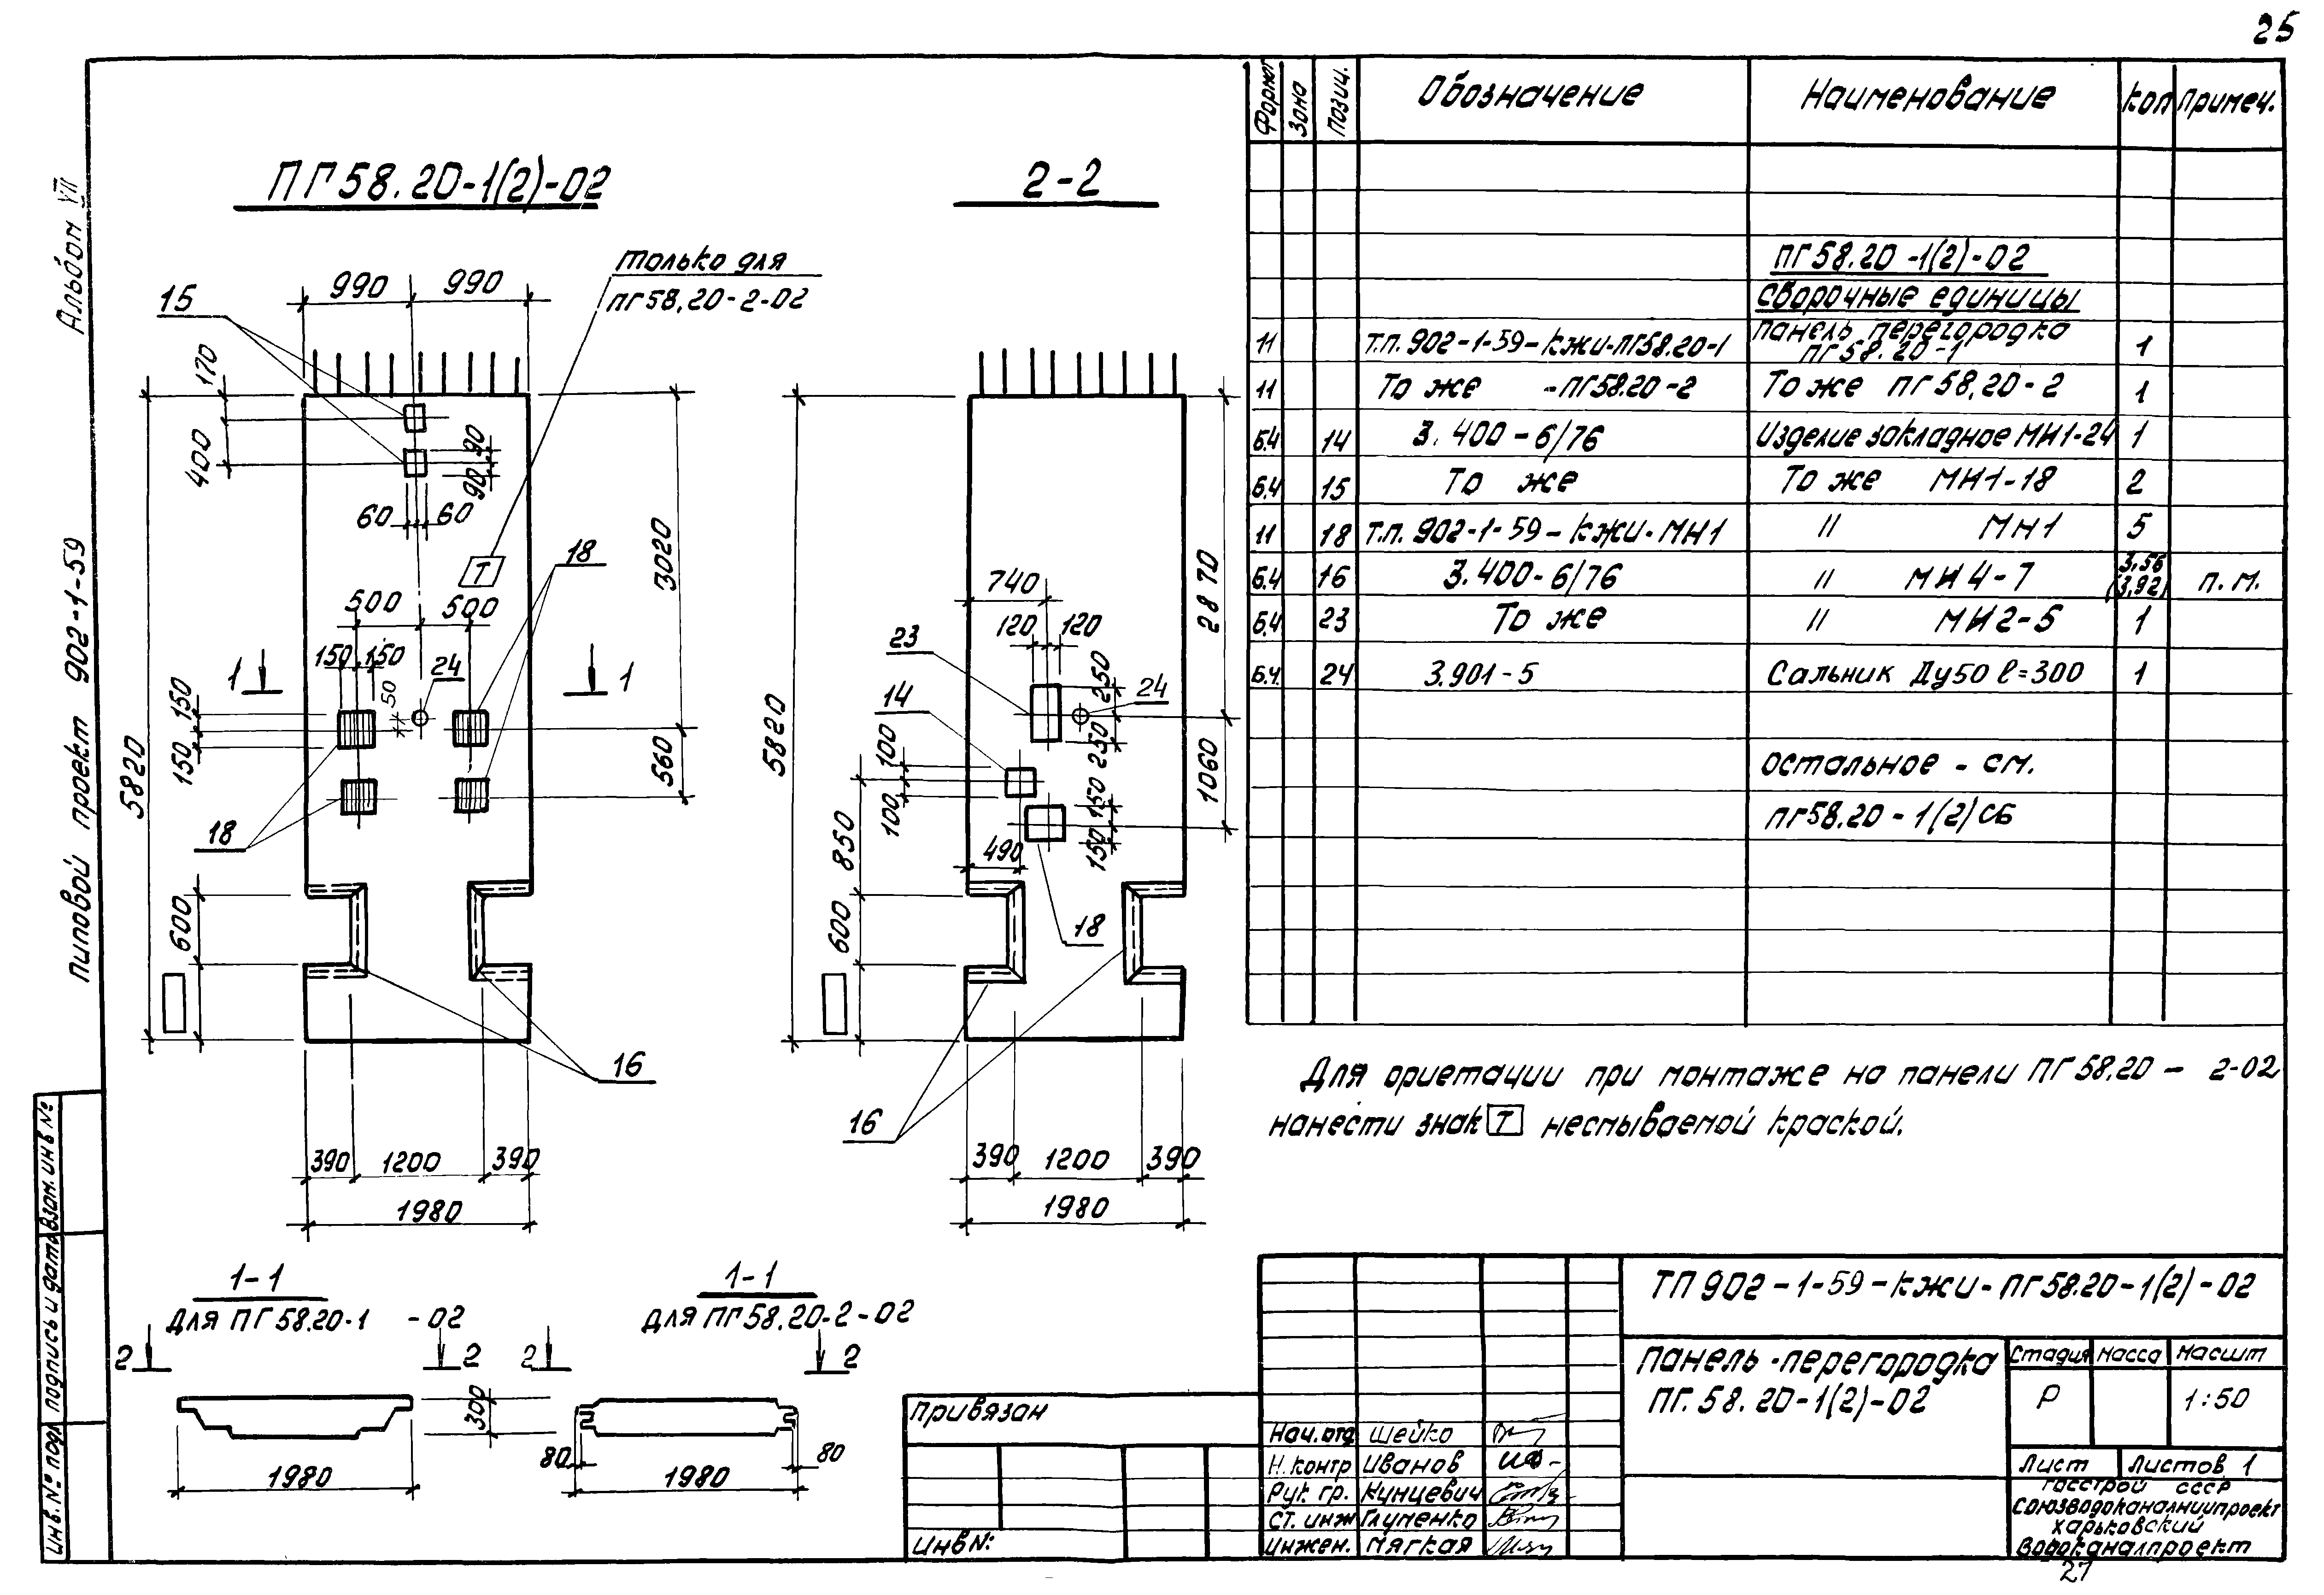 25
Альбом VII
Типовой проект 902-1-59
ПГ58.20-1(2)-02
2-2
только для
пг58.20-2-02
990 990
15
170
400
90
90
60 60
18
500 500
150 150
24
50
1 1
150
150
5820
3020
560
18
600
16
390 1200 390
1980
740
120 120
23
250
250
24
14
100
100
150
150
2870
1060
5820
850
490
18
600
16
390 1200 390
1980
1-1
для ПГ58.20-1 -02
2 2
300
1980
1-1
для ПГ58.20-2-02
2 2
80 80
1980
Формат Зона Позиц. Обозначение Наименование Кол Примеч.
ПГ58.20-1(2)-02
сборочные единицы
11 Т.п. 902-1-59-КЖИ-ПГ58.20-1 Панель перегородка ПГ58.20-1 1
11 То же -ПГ58.20-2 То же ПГ58.20-2 1
Б.4 14 3.400-6/76 Изделие закладное МН1-24 1
Б.4 15 То же То же МН1-18 2
11 18 Т.п. 902-1-59-КЖИ-МН1 " МН1 5
Б.4 16 3.400-6/76 " МН4-7 3,56 (3,92) п.м.
Б.4 23 То же " МН2-5 1
Б.4. 24 3.901-5 Сальник Ду50 ℓ=300 1
остальное - см.
пг58.20-1(2)СБ
Для ориетации при монтаже на панели ПГ58.20- 2-02
нанести знак Т несмываемой краской.
ТП902-1-59-КЖИ-ПГ58.20-1(2)-02
Панель-перегородка
ПГ.58.20-1(2)-02
Стадия Масса Масшт
Р 1:50
Лист Листов 1
Госстрой СССР
Союзводоканалниипроект
Харьковский
Водоканалпроект
Привязан
Инв №:
Нач.отд Шейко
Н.контр Иванов
Рук. гр. Кунцевич
Ст. инж Глуменко
Инжен. Мягкая
Инв.№ подл Подпись и дата Взам.инв №
27